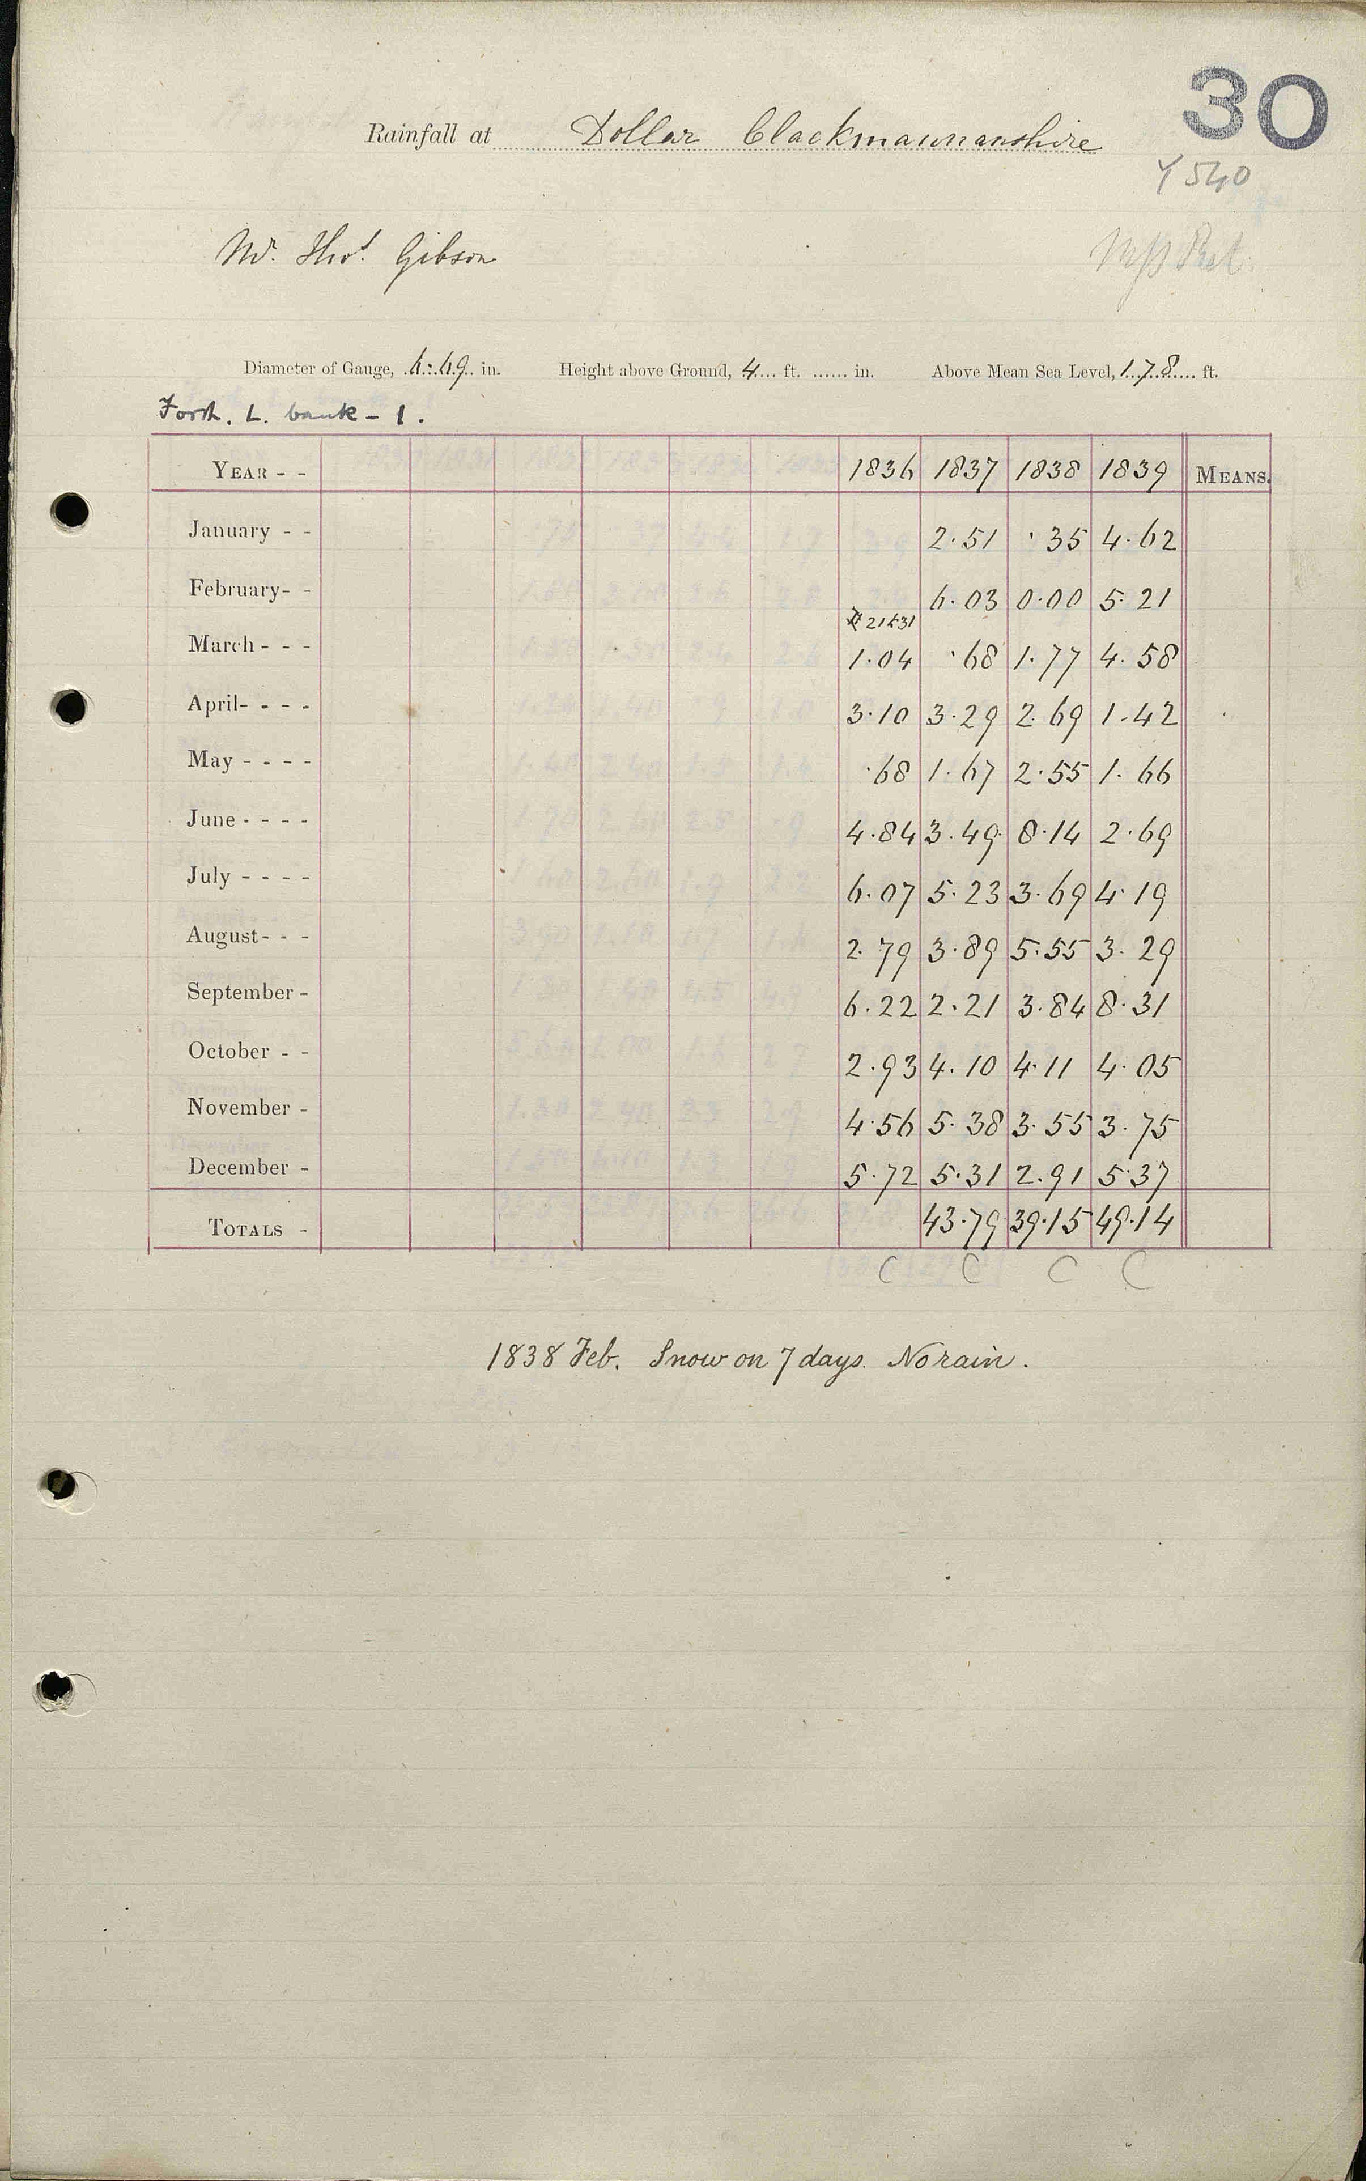 30
Rainfall at Dollar Clackmannanshire
Y 540
Mr. Thos. Gibson
Diameter of Gauge, 6.69 in. Height above Ground, 4 ft. ...... in. Above Mean Sea Level, 178 ft.
Forth. L. bank - 1.
YEAR - - 1836 1837 1838 1839 MEANS.
January - - 2.51 .35 4.62
February- - 6.03 0.00 5.21
21-31
March - - - 1.04 .68 1.77 4.58
April- - - - 3.10 3.29 2.69 1.42
May - - - - .68 1.67 2.55 1.66
June - - - - 4.84 3.49 8.14 2.69
July - - - - 6.07 5.23 3.69 4.19
August- - - 2.79 3.89 5.55 3.29
September - 6.22 2.21 3.84 8.31
October - - 2.93 4.10 4.11 4.05
November - 4.56 5.38 3.55 3.75
December - 5.72 5.31 2.91 5.37
TOTALS - 43.79 39.15 49.14
C C C C
1838 Feb. Snow on 7 days. No rain.